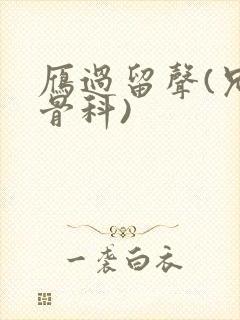 雁過留聲(兄
骨科)
一袭白衣